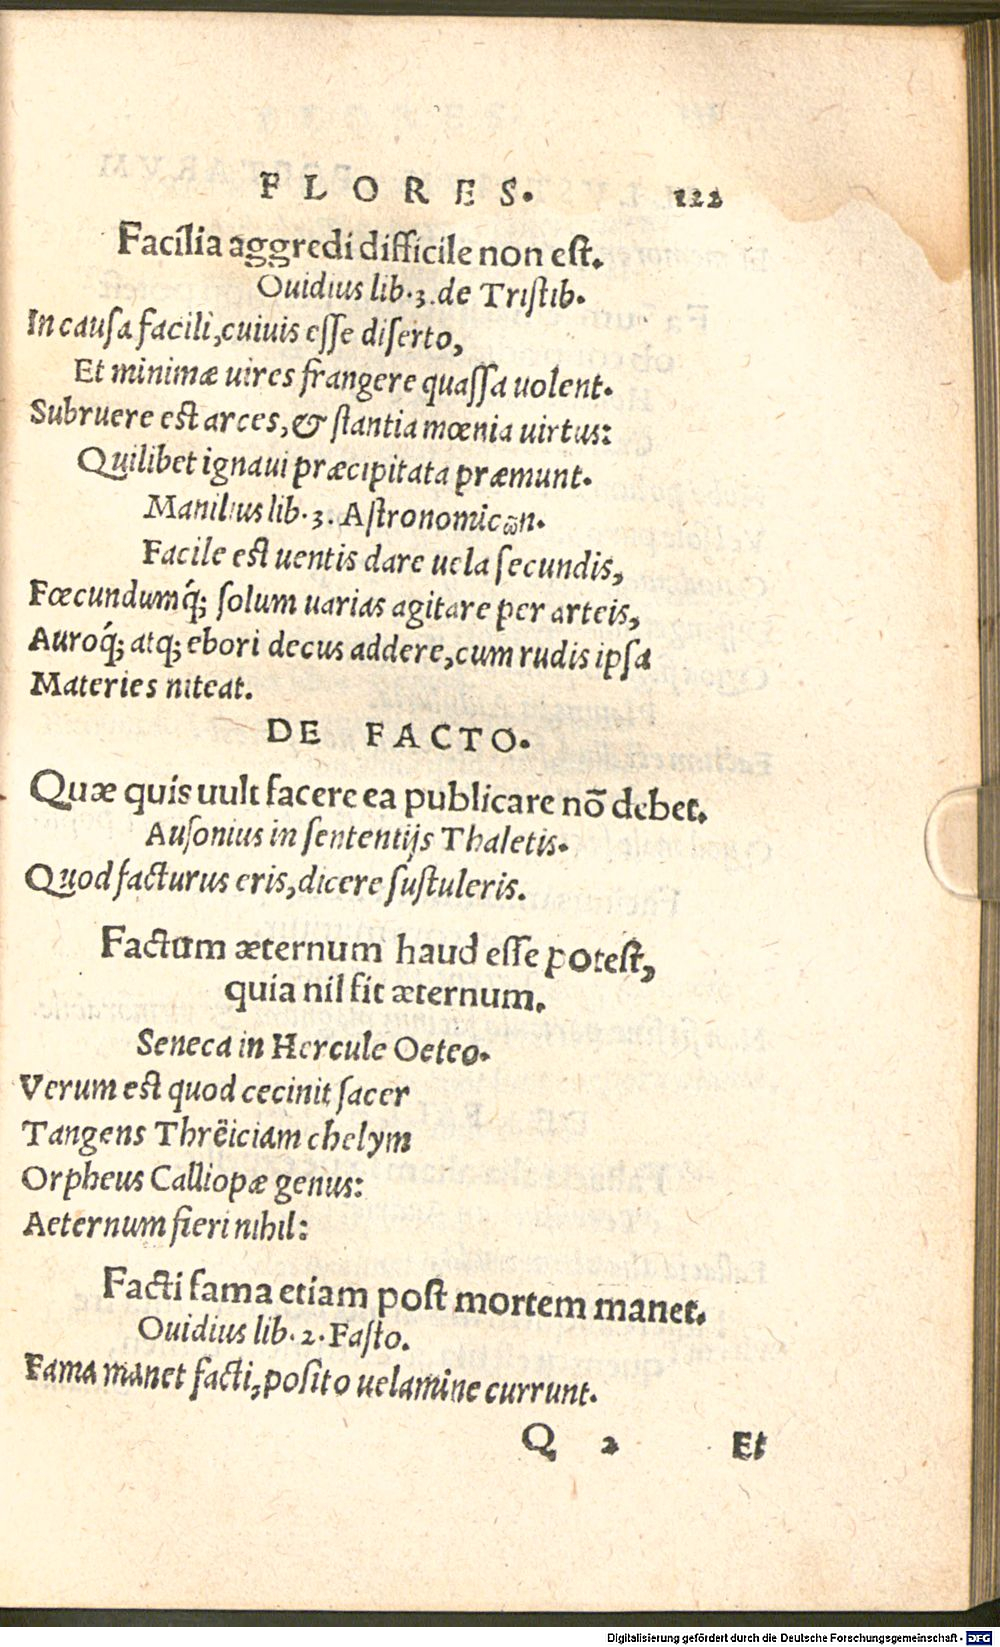 FLORES. 122
Facilia aggredi difficile non est.
Ouidius lib.3.de Tristib.
In causa facili, cuiuis esse diserto,
Et minimæ uires frangere quassa uolent.
Subruere est arces, & stantia mœnia uirtus:
Quilibet ignaui præcipitata præmunt.
Manilius lib.3. Astronomicῶn.
Facile est uentis dare uela secundis,
Fœcundumq́; solum uarias agitare per arteis,
Auroq́; atq; ebori decus addere, cum rudis ipsa
Materies niteat.
DE FACTO.
Quæ quis uult facere ea publicare nō debet.
Ausonius in sententijs Thaletis.
Quod facturus eris, dicere sustuleris.
Factum æternum haud esse potest,
quia nil fit æternum.
Seneca in Hercule Oeteo.
Verum est quod cecinit sacer
Tangens Thrëiciam chelym
Orpheus Calliopæ genus:
Aeternum fieri nihil:
Facti fama etiam post mortem manet.
Ouidius lib.2.Fasto.
Fama manet facti, posito uelamine currunt.
Q 2 Et
Digitalisierung gefördert durch die Deutsche Forschungsgemeinschaft - DFG